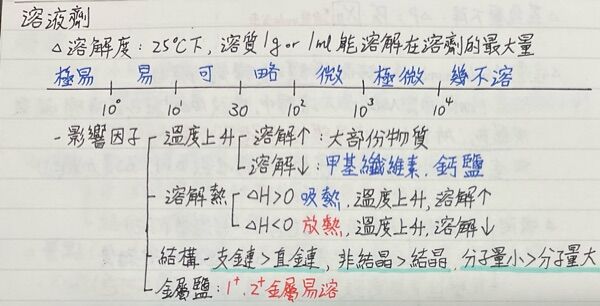 溶液劑
△溶解度：25°C下，溶質1g or 1ml能溶解在溶劑的最大量
極易 易 可 略 微 極微 幾不溶
10⁰ 10¹ 30 10² 10³ 10⁴
-影響因子 溫度上升 溶解↑：大部份物質
溶解↓：甲基纖維素、鈣鹽
溶解熱 △H>0 吸熱，溫度上升，溶解↑
△H<0 放熱，溫度上升，溶解↓
結構-支鏈>直鏈，非結晶>結晶，分子量小>分子量大
金屬鹽：1⁺、2⁺金屬易溶